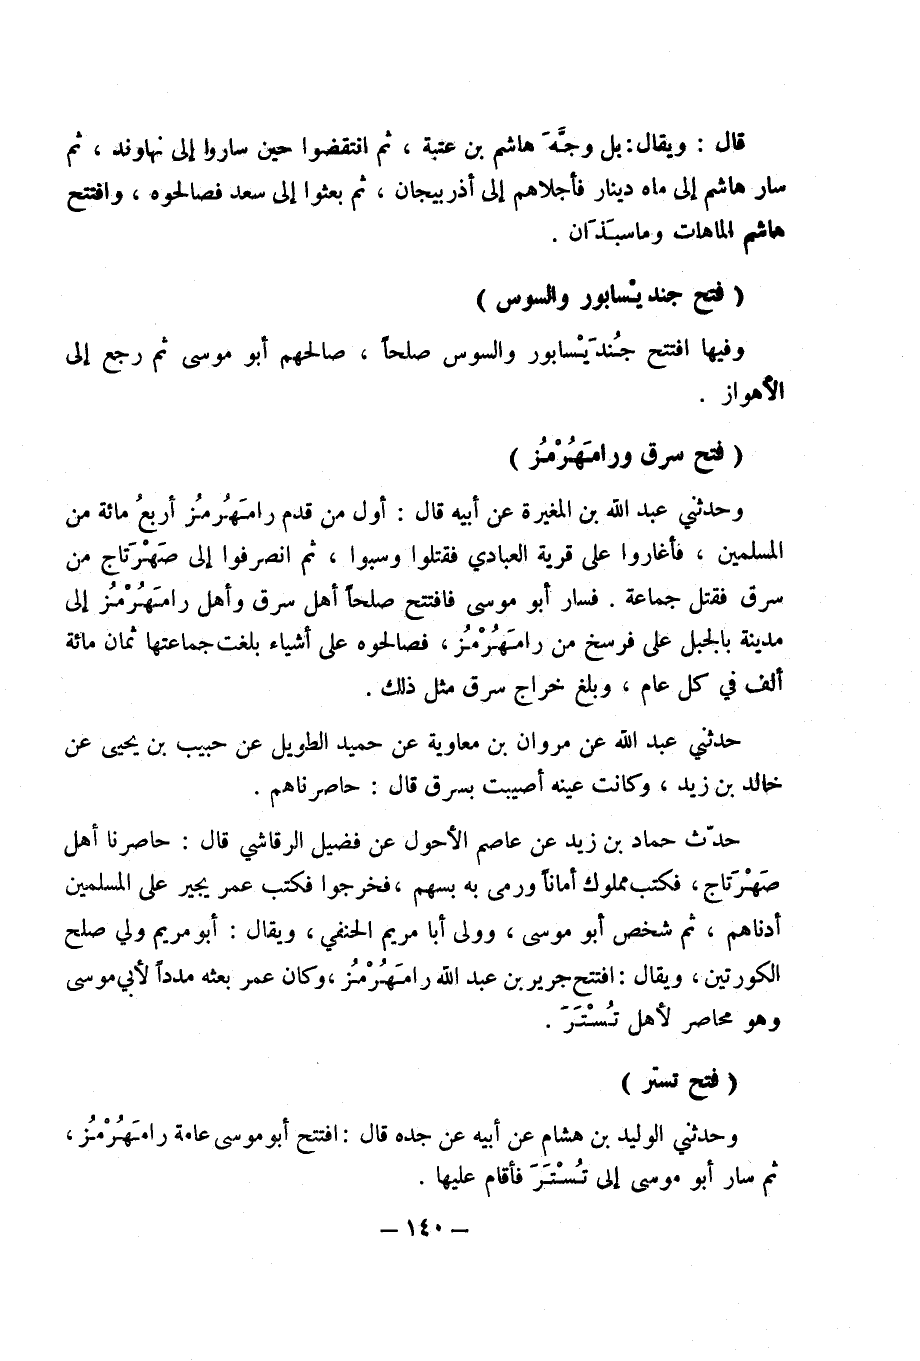 قال : ويقال : بل وجَّهَ هاشم بن عتبة ، ثم انتقضوا حين ساروا إلى نهاوند ، ثم
سار هاشم إلى ماه دينار فأجلاهم إلى أذربيجان ، ثم بعثوا إلى سعد فصالحوه ، وافتتح
هاشم الماهات وماسبَذَان .
( فتح جنديْسابور والسوس )
وفيها افتتح جُندَيْسابور والسوس صلحاً ، صالحهم أبو موسى ثم رجع إلى
الأهواز .
( فتح سرق ورامَهُرْمُز )
وحدثني عبد الله بن المغيرة عن أبيه قال : أول من قدم رامَهُرمُز أربعُ مائة من
المسلمين ، فأغاروا على قرية العبادي فقتلوا وسبوا ، ثم انصرفوا إلى صَهْرَتاج من
سرق فقتل جماعة . فسار أبو موسى فافتتح صلحاً أهل سرق وأهل رامَهُرْمُز إلى
مدينة بالجبل على فرسخ من رامَهُرْمُز ، فصالحوه على أشياء بلغت جماعتها ثمان مائة
ألف في كل عام ، وبلغ خراج سرق مثل ذلك .
حدثني عبد الله عن مروان بن معاوية عن حميد الطويل عن حبيب بن يحيى عن
خالد بن زيد ، وكانت عينه أصيبت بسرق قال : حاصرناهم .
حدّث حماد بن زيد عن عاصم الأحول عن فضيل الرقاشي قال : حاصرنا أهل
صَهْرَتاج ، فكتب مملوك أماناً ورمى به بسهم ، فخرجوا فكتب عمر يجير على المسلمين
أدناهم ، ثم شخص أبو موسى ، وولى أبا مريم الحنفي ، ويقال : أبو مريم ولي صلح
الكورتين ، ويقال : افتتح جرير بن عبد الله رامَهُرْمُز ، وكان عمر بعثه مدداً لأبي موسى
وهو محاصر لأهل تُسْتَرَ .
( فتح تستّر )
وحدثني الوليد بن هشام عن أبيه عن جده قال : افتتح أبو موسى عامة رامَهُرْمُز ،
ثم سار أبو موسى إلى تُسْتَرَ فأقام عليها .
– ١٤٠ –